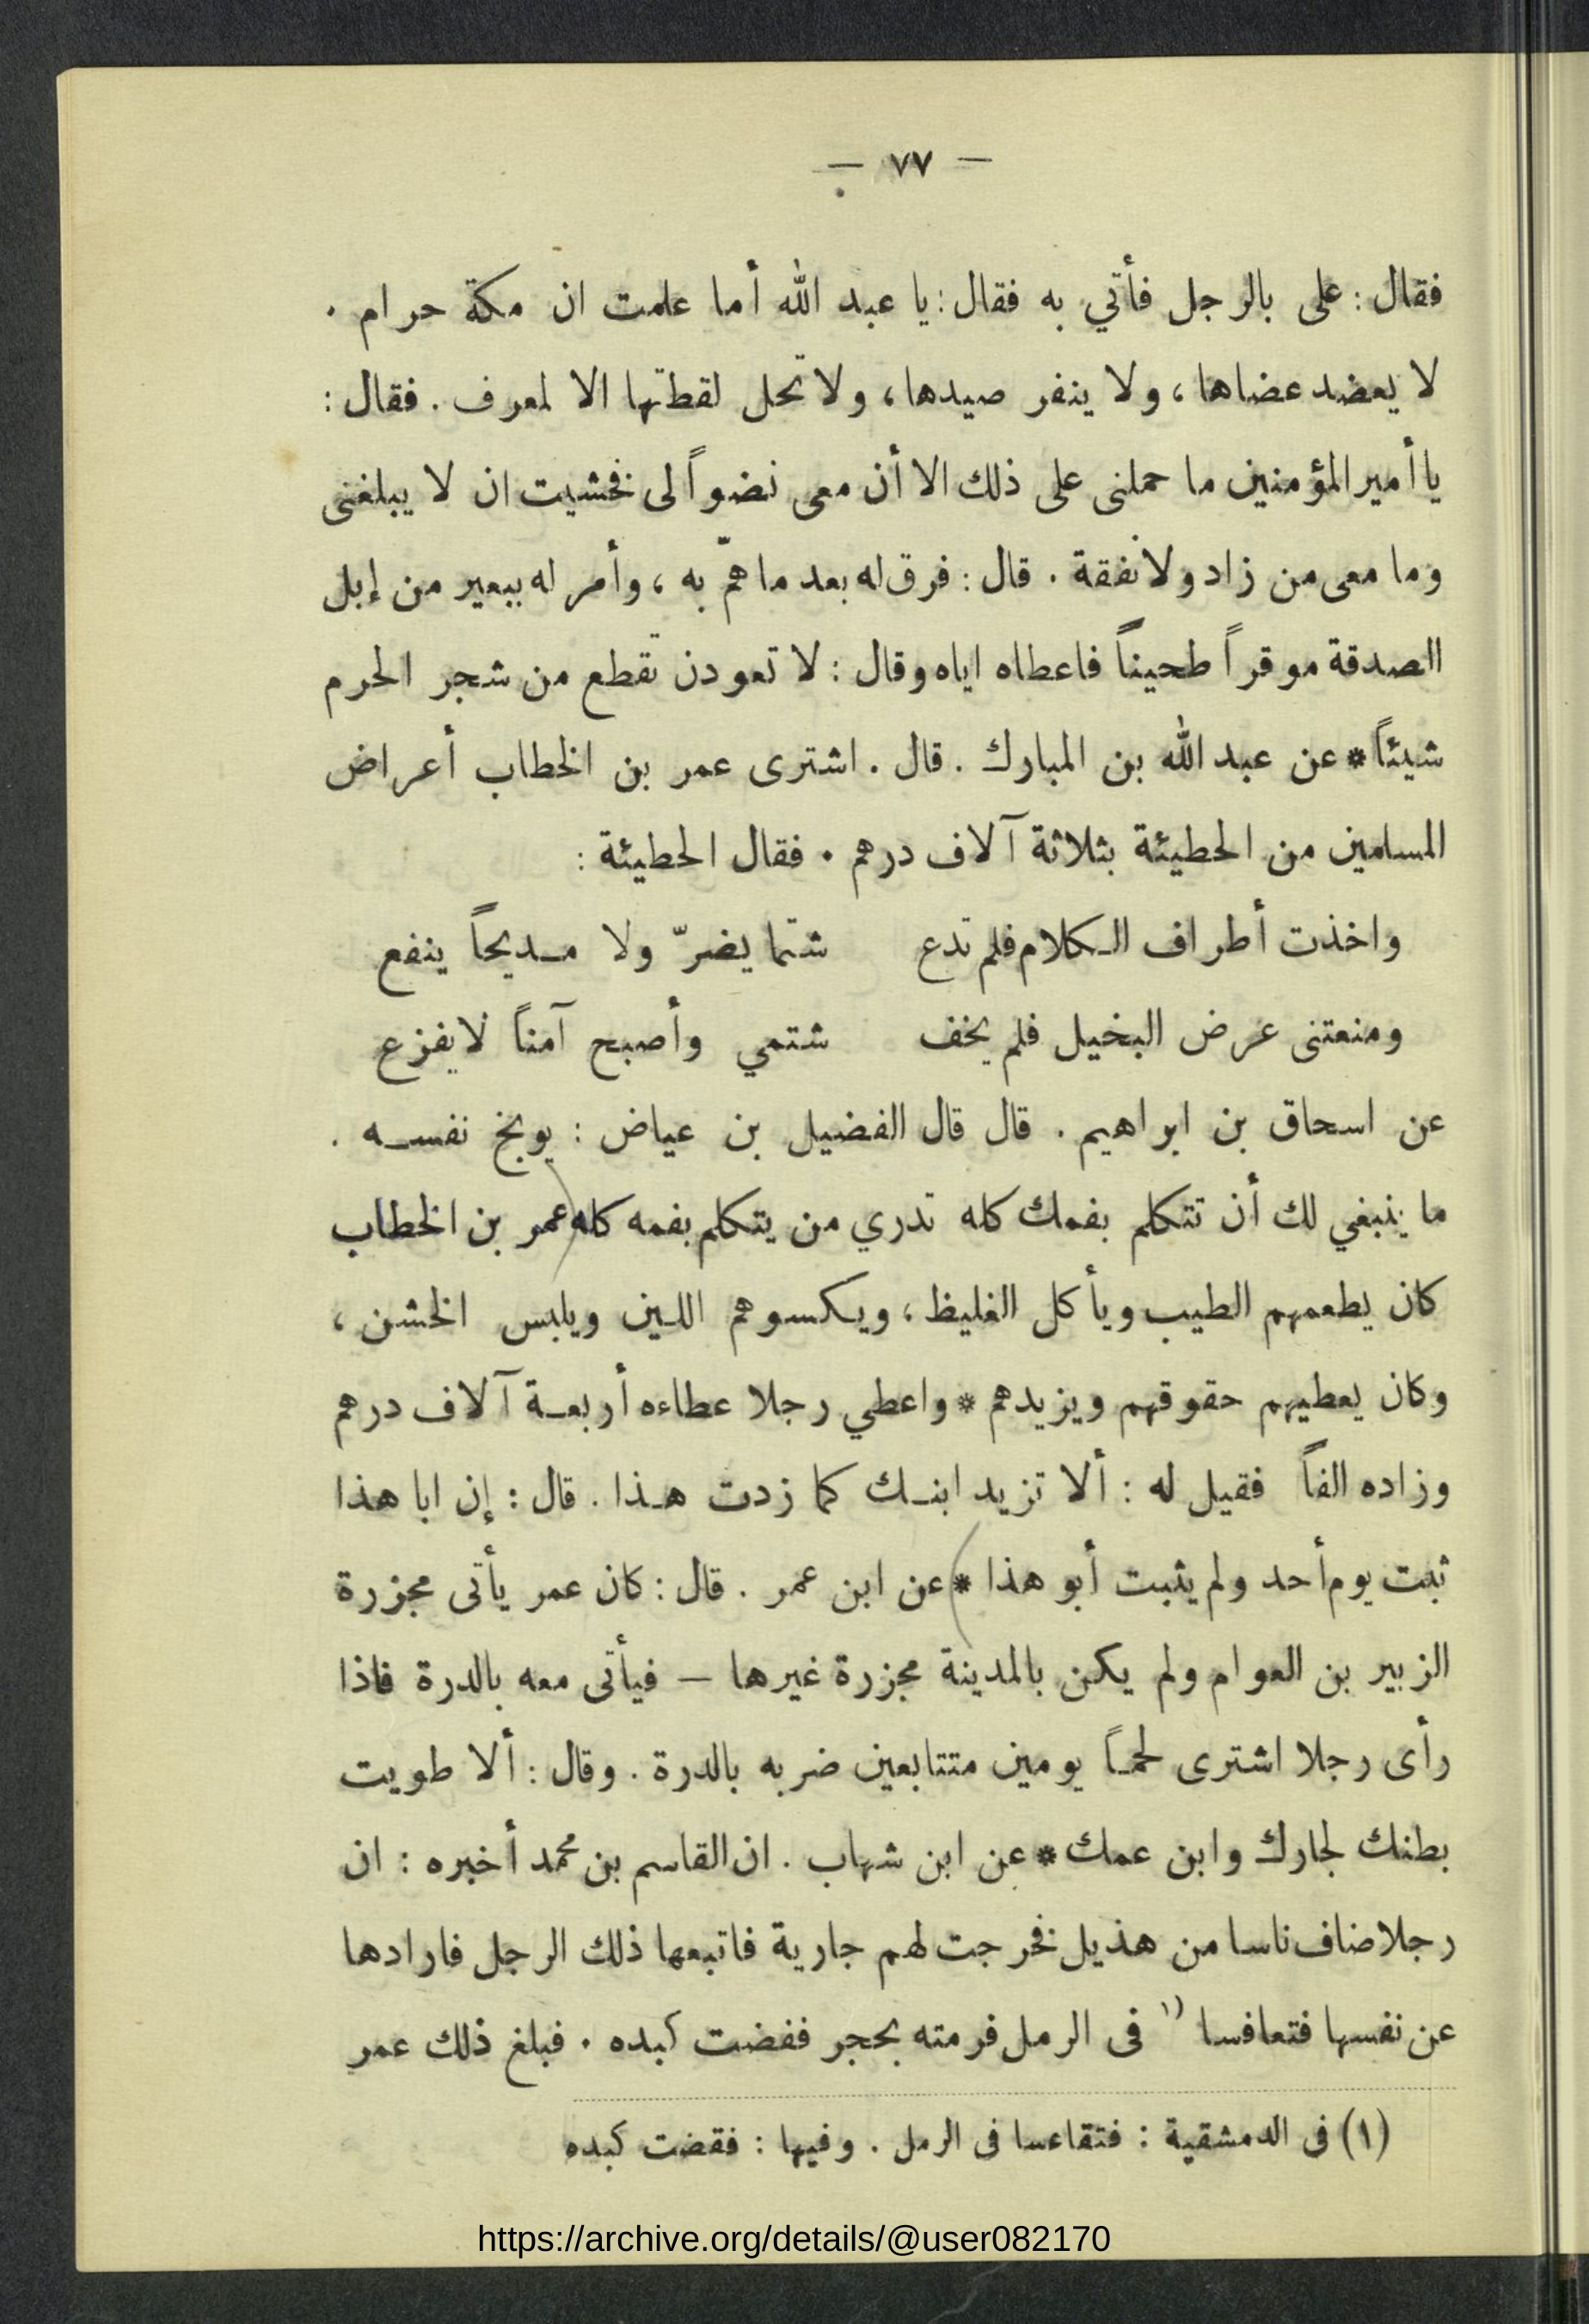 — ٧٧ —
فقال : على بالرجل فأتي به فقال : يا عبد الله أما علمت ان مكة حرام .
لا يعضد عضاها ، ولا ينفر صيدها ، ولا تحل لقطتها الا لمعرف . فقال :
يا أمير المؤمنين ما حملنى على ذلك الا أن معى نضواً لى فخشيت ان لا يبلغنى
وما معى من زاد ولا نفقة . قال : فرق له بعد ما همّ به ، وأمر له ببعير من إبل
الصدقة موقراً طحيناً فاعطاه اياه وقال : لا تعودن تقطع من شجر الحرم
شيئاً * عن عبد الله بن المبارك . قال . اشترى عمر بن الخطاب أعراض
المسلمين من الحطيئة بثلاثة آلاف درهم . فقال الحطيئة :
واخذت أطراف الكلام فلم تدع شتما يضرّ ولا مديحاً ينفع
ومنعتنى عرض البخيل فلم يخف شتمي وأصبح آمناً لا يفزع
عن اسحاق بن ابراهيم . قال قال الفضيل بن عياض : يوبخ نفسه .
ما ينبغي لك أن تتكلم بفمك كله تدري من يتكلم بفمه كله عمر بن الخطاب
كان يطعمهم الطيب ويأكل الغليظ ، ويكسوهم اللين ويلبس الخشن ،
وكان يعطيهم حقوقهم ويزيدهم * واعطي رجلا عطاءه أربعة آلاف درهم
وزاده الفاً فقيل له : ألا تزيد ابنك كما زدت هذا . قال : إن ابا هذا
ثبت يوم أحد ولم يثبت أبو هذا * عن ابن عمر . قال : كان عمر يأتى مجزرة
الزبير بن العوام ولم يكن بالمدينة مجزرة غيرها — فيأتى معه بالدرة فاذا
رأى رجلا اشترى لحماً يومين متتابعين ضربه بالدرة . وقال : ألا طويت
بطنك لجارك وابن عمك * عن ابن شهاب . ان القاسم بن محمد أخبره : ان
رجلا ضاف ناسا من هذيل فخرجت لهم جارية فاتبعها ذلك الرجل فارادها
عن نفسها فتعافسا (١ فى الرمل فرمته بحجر ففضت كبده . فبلغ ذلك عمر
(١) فى الدمشقية : فتقاعسا فى الرمل . وفيها : فقضت كبده
https://archive.org/details/@user082170